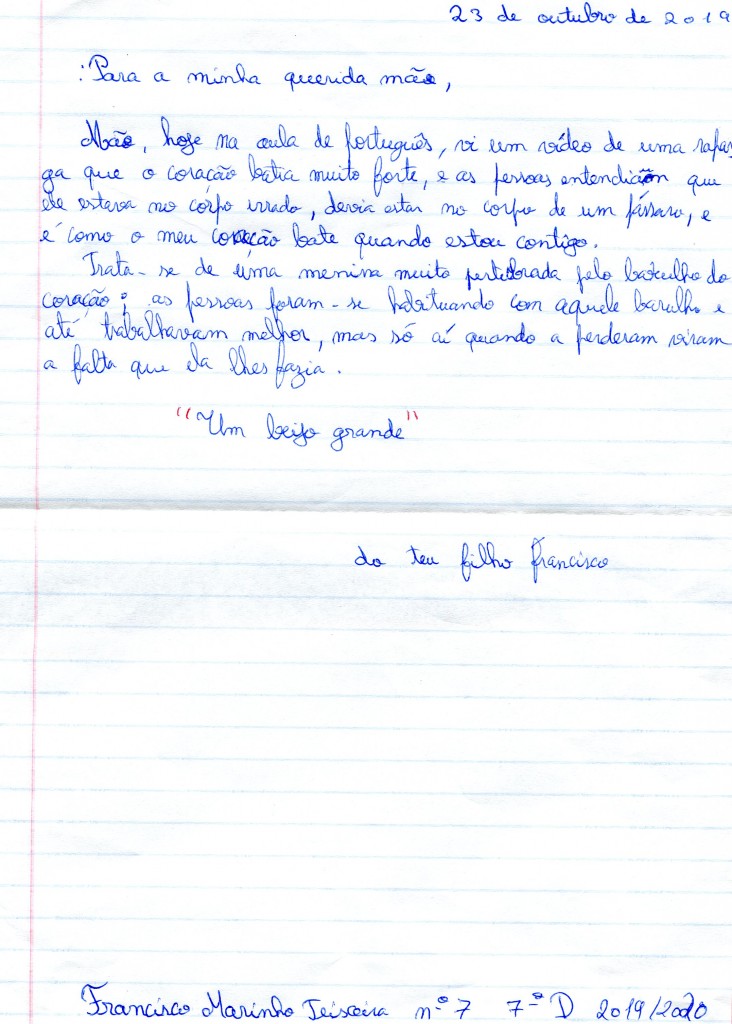 23 de outubro de 2019
:Para a minha querida mãe,
Mãe, hoje na aula de português, vi um vídeo de uma rapar
ga que o coração batia muito forte, e as pessoas entendiam que
ele estava no corpo errado, devia estar no corpo de um pássaro, e
é como o meu coração bate quando estou contigo.
Trata-se de uma menina muito perturbada pelo barulho do
coração; as pessoas foram-se habituando com aquele barulho e
até trabalhavam melhor, mas só aí quando a perderam viram
a falta que ela lhes fazia.
"Um beijo grande"
do teu filho Francisco
Francisco Marinho Teixeira nº7 7ºD 2019/2020